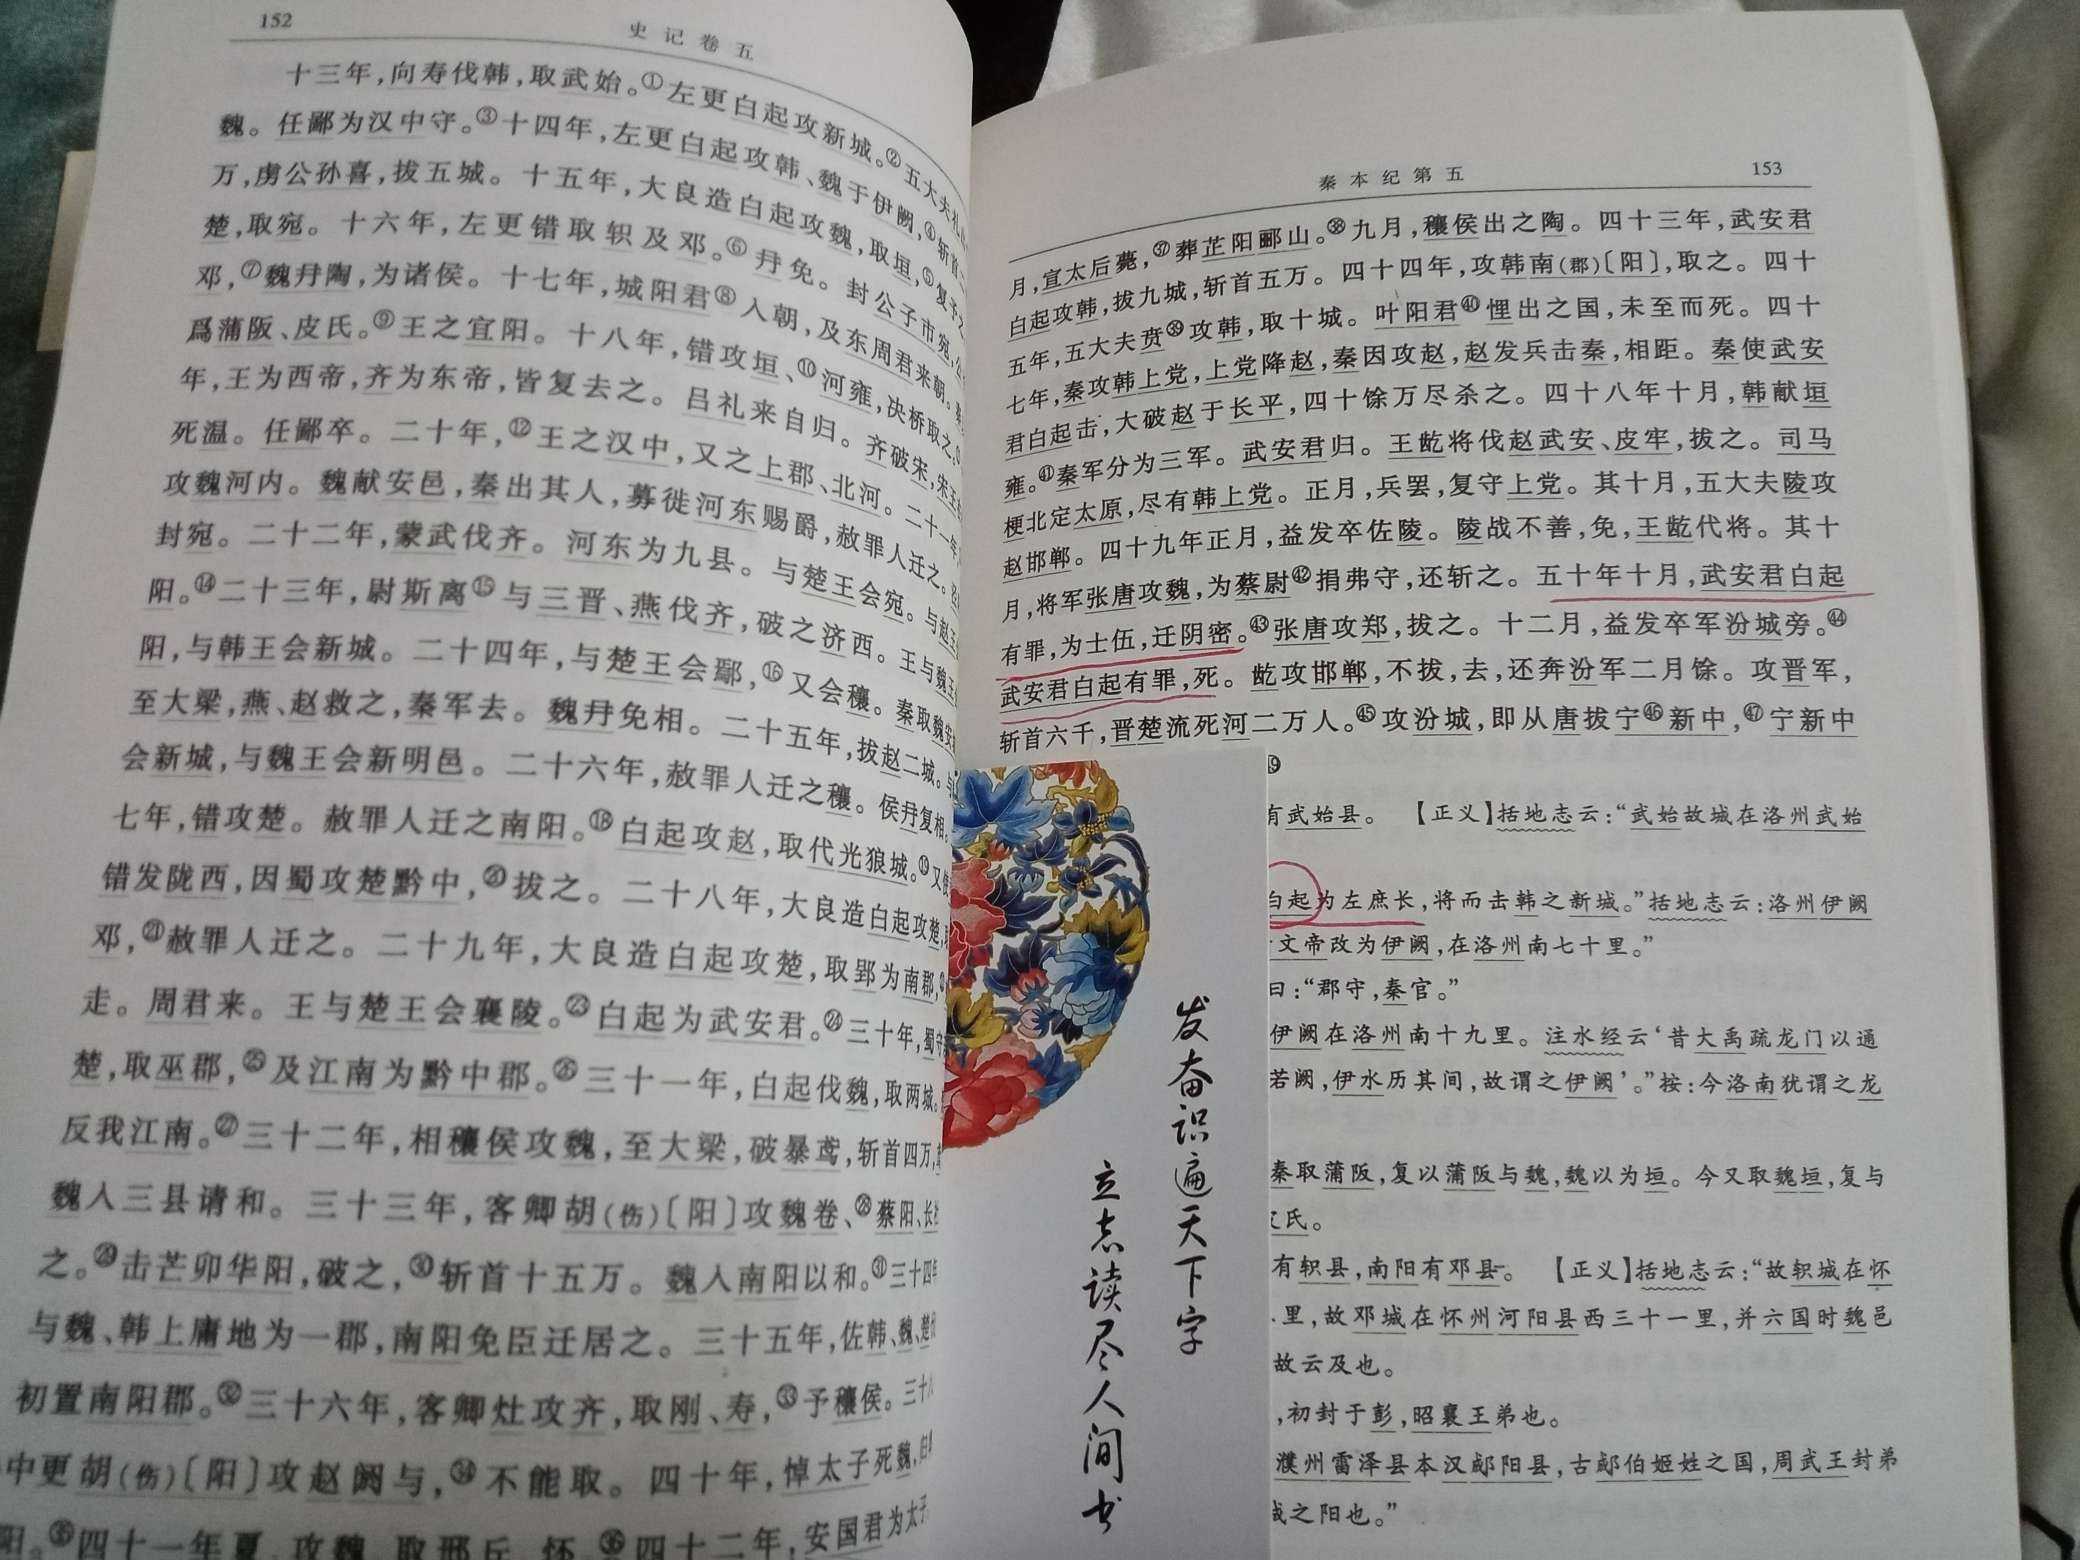 152
史记卷五
十三年,向寿伐韩,取武始。①左更白起攻新城。②五大夫礼
魏。任鄙为汉中守。③十四年,左更白起攻韩、魏于伊阙,④斩首
万,虏公孙喜,拔五城。十五年,大良造白起攻魏,取垣,⑤复予之
楚,取宛。十六年,左更错取轵及邓。⑥冉免。封公子市宛,公
邓,⑦魏冉陶,为诸侯。十七年,城阳君⑧入朝,及东周君来朝。
爲蒲阪、皮氏。⑨王之宜阳。十八年,错攻垣、⑩河雍,决桥取之。
年,王为西帝,齐为东帝,皆复去之。吕礼来自归。齐破宋,宋王
死温。任鄙卒。二十年,⑫王之汉中,又之上郡、北河。二十一年,
攻魏河内。魏献安邑,秦出其人,募徙河东赐爵,赦罪人迁之。
封宛。二十二年,蒙武伐齐。河东为九县。与楚王会宛。与赵王
阳。⑭二十三年,尉斯离⑮与三晋、燕伐齐,破之济西。王与魏王
阳,与韩王会新城。二十四年,与楚王会鄢,⑯又会穰。秦取魏安
至大梁,燕、赵救之,秦军去。魏冉免相。二十五年,拔赵二城。与
会新城,与魏王会新明邑。二十六年,赦罪人迁之穰。侯冉复相。
七年,错攻楚。赦罪人迁之南阳。⑱白起攻赵,取代光狼城。⑲又使
错发陇西,因蜀攻楚黔中,⑳拔之。二十八年,大良造白起攻楚,
邓,㉑赦罪人迁之。二十九年,大良造白起攻楚,取郢为南郡,
走。周君来。王与楚王会襄陵。㉓白起为武安君。㉔三十年,蜀守
楚,取巫郡,㉕及江南为黔中郡。㉖三十一年,白起伐魏,取两城。
反我江南。㉗三十二年,相穰侯攻魏,至大梁,破暴鸢,斩首四万,
魏入三县请和。三十三年,客卿胡(伤)〔阳〕攻魏卷、㉘蔡阳、长社
之。㉙击芒卯华阳,破之,㉚斩首十五万。魏入南阳以和。㉛三十四年
与魏、韩上庸地为一郡,南阳免臣迁居之。三十五年,佐韩、魏、楚
初置南阳郡。㉜三十六年,客卿灶攻齐,取刚、寿,㉝予穰侯。三十
中更胡(伤)〔阳〕攻赵阏与,㉞不能取。四十年,悼太子死魏,
阳。㉟四十一年夏,攻魏,取邢丘、怀。㊱四十二年,安国君为太子
秦本纪第五
153
月,宣太后薨,㊲葬芷阳郦山。㊳九月,穰侯出之陶。四十三年,武安君
白起攻韩,拔九城,斩首五万。四十四年,攻韩南(郡)〔阳〕,取之。四十
五年,五大夫贲㊴攻韩,取十城。叶阳君㊵悝出之国,未至而死。四十
七年,秦攻韩上党,上党降赵,秦因攻赵,赵发兵击秦,相距。秦使武安
君白起击,大破赵于长平,四十馀万尽杀之。四十八年十月,韩献垣
雍。㊶秦军分为三军。武安君归。王龁将伐赵武安、皮牢,拔之。司马
梗北定太原,尽有韩上党。正月,兵罢,复守上党。其十月,五大夫陵攻
赵邯郸。四十九年正月,益发卒佐陵。陵战不善,免,王龁代将。其十
月,将军张唐攻魏,为蔡尉㊷捐弗守,还斩之。五十年十月,武安君白起
有罪,为士伍,迁阴密。㊸张唐攻郑,拔之。十二月,益发卒军汾城旁。㊹
武安君白起有罪,死。龁攻邯郸,不拔,去,还奔汾军二月馀。攻晋军,
斩首六千,晋楚流死河二万人。㊺攻汾城,即从唐拔宁㊻新中,㊼宁新中
有武始县。 【正义】括地志云:“武始故城在洛州武始
白起为左庶长,将而击韩之新城。”括地志云:洛州伊阙
文帝改为伊阙,在洛州南七十里。”
曰:“郡守,秦官。”
伊阙在洛州南十九里。注水经云‘昔大禹疏龙门以通
若阙,伊水历其间,故谓之伊阙’。”按:今洛南犹谓之龙
秦取蒲阪,复以蒲阪与魏,魏以为垣。今又取魏垣,复与
皮氏。
有轵县,南阳有邓县。 【正义】括地志云:“故轵城在怀
里,故邓城在怀州河阳县西三十一里,并六国时魏邑
故云及也。
,初封于彭,昭襄王弟也。
濮州雷泽县本汉郕阳县,古郕伯姬姓之国,周武王封弟
之阳也。”
发奋识遍天下字
立志读尽人间书